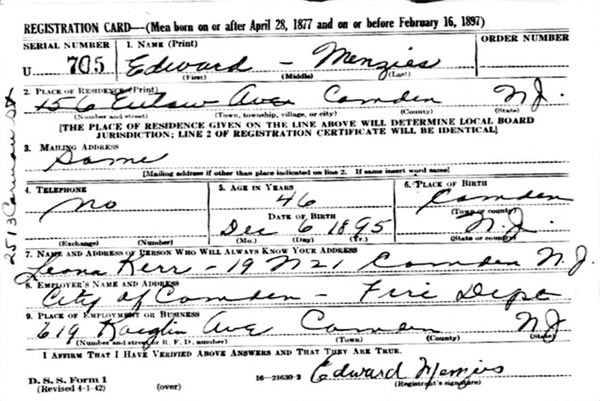 REGISTRATION CARD—(Men born on or after April 28, 1877 and on or before February 16, 1897)
SERIAL NUMBER 1. NAME (Print) ORDER NUMBER
U 705 Edward - Menzies
(First) (Middle) (Last)
2. PLACE OF RESIDENCE (Print)
456 Ave Camden N.J.
(Number and street) (Town, township, village, or city) (County) (State)
[THE PLACE OF RESIDENCE GIVEN ON THE LINE ABOVE WILL DETERMINE LOCAL BOARD
JURISDICTION; LINE 2 OF REGISTRATION CERTIFICATE WILL BE IDENTICAL]
3. MAILING ADDRESS
Same
[Mailing address if other than place indicated on line 2. If same insert word same]
4. TELEPHONE 5. AGE IN YEARS 6. PLACE OF BIRTH
No 46 Camden
DATE OF BIRTH (Town or county)
Dec 6 1895 N.J.
(Exchange) (Number) (Mo.) (Day) (Yr.) (State or country)
7. NAME AND ADDRESS OF PERSON WHO WILL ALWAYS KNOW YOUR ADDRESS
Leona Kerr - 19 N 21 Camden N.J.
8. EMPLOYER'S NAME AND ADDRESS
City of Camden - Fire Dept
9. PLACE OF EMPLOYMENT OR BUSINESS
619 Ave Camden NJ
(Number and street or R. F. D. number) (Town) (County) (State)
I AFFIRM THAT I HAVE VERIFIED ABOVE ANSWERS AND THAT THEY ARE TRUE.
D. S. S. Form 1
(Revised 4-1-42) (over) 16—21630-2 Edward Menzies
(Registrant's signature)
2513 St